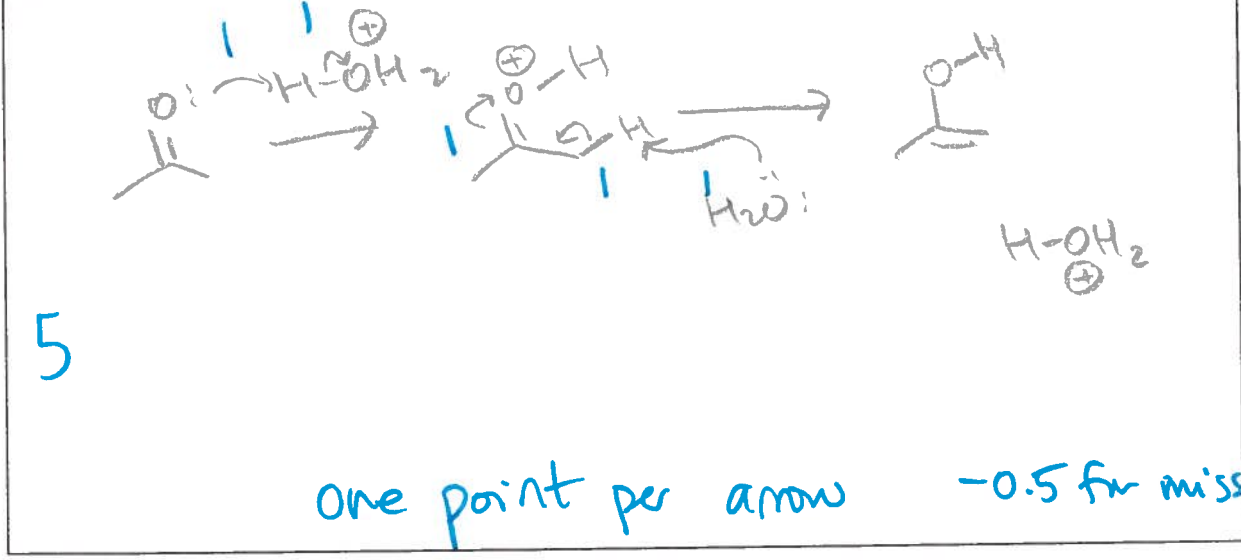 1 1 ⊕
O: H-OH2
⊕
O-H
1
H
1 1
H2O:
O-H
H-OH2
⊕
5
one point per arrow -0.5 for miss